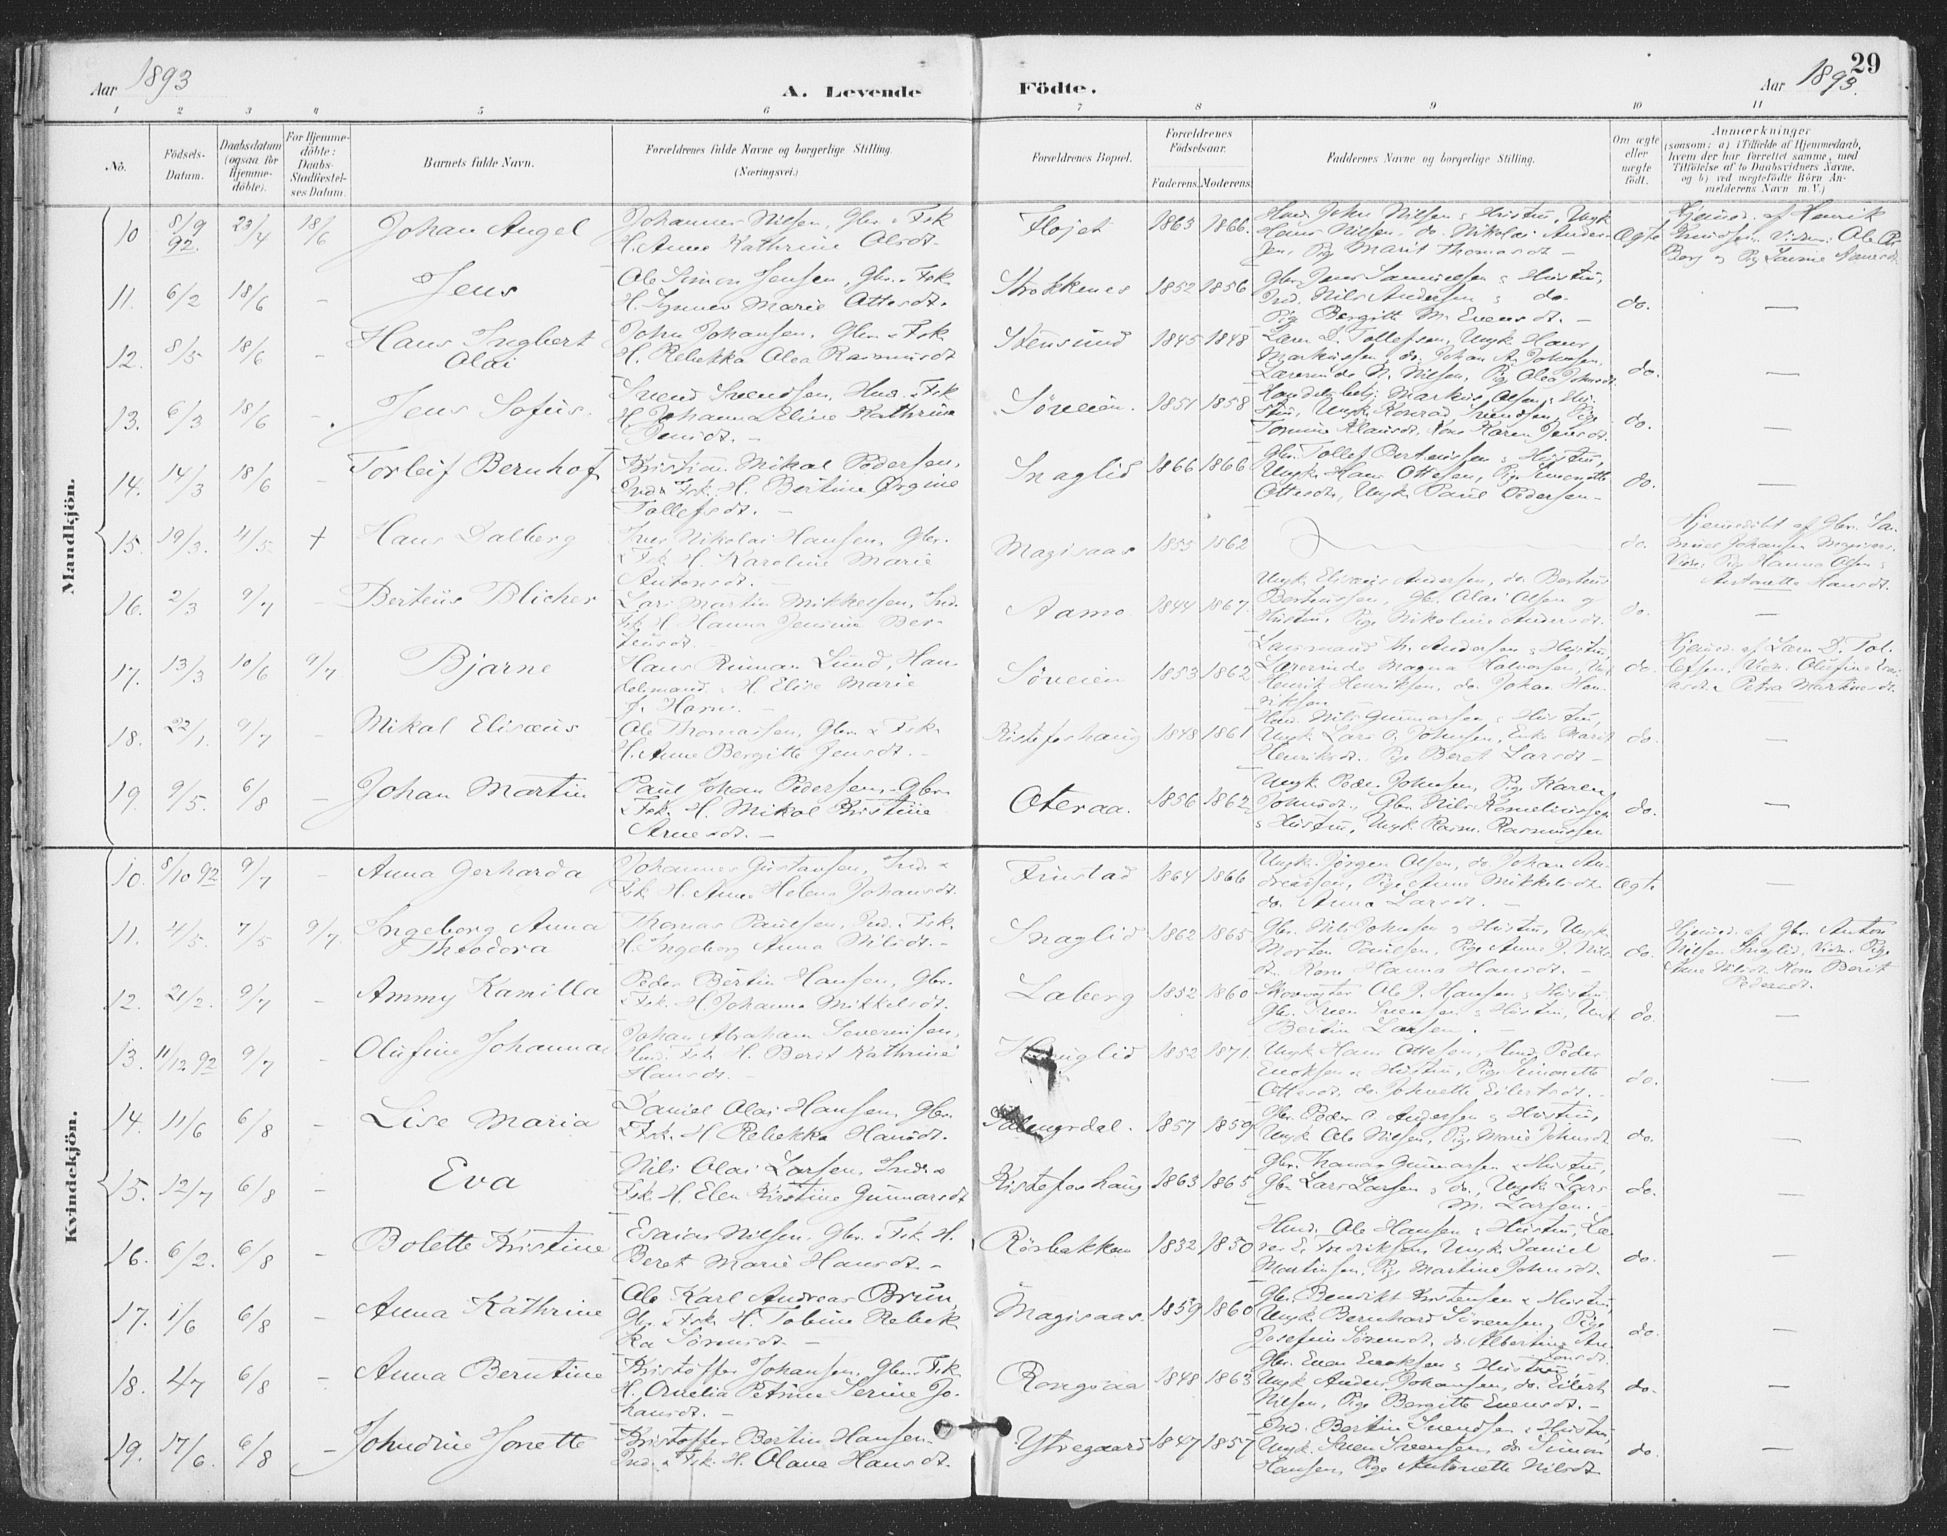 Aar 1893
A. Levende Födte.
Aar 1893.
29
1 2 3 4 5 6 7 8 9 10 11
No.
Födsels-
Datum.
Daabsdatum
(ogsaa for
Hjemme-
döbte).
For Hjemme-
döbte:
Daabs-
Stadfæstel-
ses Datum.
Barnets fulde Navn.
Forældrenes fulde Navne og borgerlige Stilling.
(Næringsvei.)
Forældrenes Bopæl.
Forældrenes
Födselsaar.
Faderens. Moderens.
Faddernes Navne og borgerlige Stilling.
Om ægte
eller
uægte
födt.
Anmærkninger
(saasom: a) i Tilfælde af Hjemmedaab,
hvem der har forrettet samme, med
Tilföielse af to Daabsvidners Navne.
og b) ved uægtefödte Börn An-
melderens Navn m. V.)
Mandkjön.
10 8/9 92. 23/4 18/6 Johan Angel
Johannes Nilsen, Gbr. & Fsk
H. Anne Kathrine Olsdt.
Fløjet 1863 1866.
Hmd. John Nilsen & Hustru, Ungk
Hans Nilsen, do. Nikolai Ander-
sen, Pige Marit Thomasdt. –
Ægte
Hjemmed. af Henrik
Knudsen. Vidner: Ole
11. 6/2 18/6 – Jens
Ole Simon Jensen, Gbr. & Fsk
H. Agnes Marie Ottesdt.
Strokkenes 1852 1856
Gbr. Jens Samuelsen & Hustru,
Ind. Nils Andersen & do.
Pige Bergitte M. Evensdt. –
do. –
12. 8/5 18/6 – Hans Ingbert
Olai
John Johansen, Gbr. & Fsk
H. Rebekka Olea Rasmusdt
Stensund 1845 1848
Lærer D. Tollefsen, Ungk Hans
Markussen, do. Johan A. Johnsen,
Lærerinde N. Nilsen, Pige Olea Johnsdt.
do. –
13. 6/3 18/6 – Jens Sofus.
Svend Svendsen, Hmd. & Fsk
H. Johanna Eline Kathrine
Jensdt. –
Søveien. 1851 1858
Handelsbetj Markus Olsen & Hu-
stru, Ungk Konrad Svendsen, Pige
Tomine Klausdt. Kone Karen Jensdt.
do. –
14. 14/3 18/6 – Torleif Bernhof
Kristian Mikal Pedersen,
Ind. & Fsk. H. Bertine Ørgine
Tollefsdt. –
Snaglid 1866 1866
Gbr. Tollef Bertenssen & Hustru,
Ungk Hans Ottesen, Pige Simonette
Ottesdt, Ungk. Paul Pedersen –
do. –
15. 19/3. 4/5. + Hans Dalberg
Jens Nikolai Hansen, Gbr.
& Fsk. H. Karoline Marie
Antonsdt. –
Magisaas 1855 1862
do.
Hjemmedöbt af Gbr.
Johansen Magisaas.
Vidn. Pige Hanna Olsen &
Antonette Hansdt.
16. 2/3 9/7 – Berteus Blicher
Lars Martin Mikkelsen, Ind.
Fsk. H. Hanna Jensine Ber-
teusdt. –
Aamo 1844 1867.
Ungk. Elisæus Andersen, do. Berteus
Berteussen, Gbr. Olai Olsen og
Hustru, Pige Nikoline Andersdt.
do. –
17. 13/3 10/6 9/7 Bjarne
Hans Reinan Lund, Han-
delsmand. & H. Elise Marie
f. Havn. –
Søveien 1853 1862
Lensmand Th. Andersen & Hustru,
Lærerinde Magna Halvorsen, Ungk
Henrik Henriksen, do. Johan Hen-
riksen
do.
Hjemmed. af Lærer D. Tol-
lefsen, Vidn. Olufine
& Petra Martinesdt.
18. 22/1. 9/7 – Mikal Elisæus
Ole Thomassen, Gbr. & Fsk.
H. Anne Bergitte Jensdt. –
Kistefoshaug 1848 1861
Hmd. Nils Gunnarsen & Hustru,
Ungk. Lars O. Johnsen, Enke Marit
Henriksdt. Pige Beret Larsdt –
do. –
19. 9/5. 6/8 – Johan Martin
Paul Johan Pedersen, Gbr.
& Fsk. H. Mikal Kristine
Arnesdt. –
Oteraa. 1856 1862
Ungk. Peder Johnsen, Pige Karen
Johnsdt. Gbr. Nils Kornelinssen
& Hustru, Ungk. Rasm. Rasmussen
do. –
Kvindekjön.
10. 8/10 92 9/7 – Anna Gerharda
Johannes Gustavsen, Ind. &
Fsk H. Anne Helena Johansdt.
Finstad 1864 1866
Ungk. Jørgen Olsen, do. Johan An-
dreassen, Pige Anne Mikkelsdt.
do. Anna Larsdt. –
Ægte –
11. 4/5. 7/5 9/7. Ingeborg Anna
Theodora
Thomas Paulsen, Ind. & Fsk.
H. Ingeborg Anna Nilsdt. –
Snaglid 1862 1865
Gbr. Nils Johnsen og Hustru, Ungk
Morten Paulsen, Pige Anne J. Nils-
dt. Kone Hanna Hansdt. –
do.
Hjemmed. af Gbr. Anton
Nilsen Snaglid, Vidn. Pige
Anne Nilsdt. Kone Berit
Pedersdt.
12. 21/2. 9/7 – Ammy Kamilla
Peder Bertin Hansen, Gbr.
& Fsk. H. Johanna Mikkelsdt.
Laberg 1852 1860
Skovvogter Ole J. Hansen & Hustru
Gbr. Sven Svensen & Hustru, Ungk
Bertin Larsen. –
do. –
13. 11/12 92 9/7 – Olufine Johanna
Johan Abraham Severinsen,
Hmd. Fsk. H. Berit Kathrine
Hansdt. –
1852 1871.
Ungk Hans Ottesen, Hmd. Peder
Enoksen & Hustru, Pige Simonette
Ottesdt. do. Johnette Eilertsdt. –
do. –
14. 11/6 6/8 – Lise Maria
Daniel Olai Hansen, Gbr.
& Fsk. H Rebekka Hansdt.
1857 1859
Gbr. Peder O Andersen & Hustru,
Ungk Ole Nilsen, Pige Marie Johnsdt
do. –
15. 12/7 6/8 – Eva
Nils Olai Larsen, Ind. &
Fsk. H. Elen Kirstine Gunnarsdt
Kistefoshaug 1863 1865
Gbr. Thomas Gunnarsen & Hustru,
Gbr Lars Larsen & do., Ungk Lars
M. Larsen. –
do. –
16. 6/2. 6/8 – Bolette Kristine
Esaias Nilsen, Gbr. & Fsk. H.
Beret Marie Hansdt. –
Rösbakken 1832 1850
Hmd. Ole Hansen & Hustru, Læ-
rer E. Fredriksen, Ungk Daniel
Martinsen, Pige Martine Johnsdt.
do. –
17. 1/6 6/8 – Anna Kathrine
Ole Karl Andreas Brun,
Gbr. & Fsk. H. Tobine Rebek-
ka Sörensdt. –
Magisaas. 1859 1860
Gbr. Benedikt Kristensen & Hustru,
Ungk Bernhard Sörensen, Pige
Josefine Sörensdt, do. Albertine An-
tonsdt.
do. –
18. 4/7 6/8 – Anna Berntine
Kristoffer Johansen, Gbr. & Fsk
H. Amelia Petrine Serine Jo-
hansdt. –
Rongsaa 1848 1863
Gbr. Even Enoksen & Hustru
Ungk Anders Johansen, do. Eilert
Nilsen, Pige Bergitte Evensdt. –
do. –
19. 17/6. 6/8 – Johndine Jonette
Kristoffer Bertin Hansen
Ind. & Fsk. H. Olana Hansdt.
Ytregaard 1847 1857
Ind. Bertin Svendsen & Hustru
Ungk. Sven Svensen, do. Simon
Hansen, Pige Antonette Nilsdt.
do. –